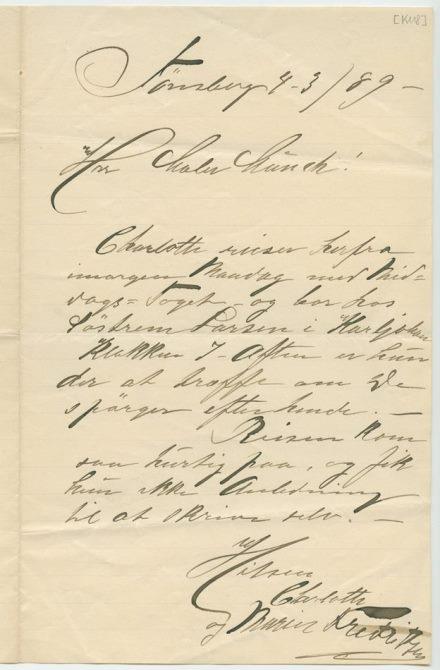 [K1418]
Tönsberg 4-3/89-
Herr Maler Munch!
Charlotte reiser herfra
imorgen Mandag med Mid=
dags=Toget - og bor hos
Söstrene Larsen i "Karljohan"
Klokken 7- Aften er hun
der at træffe om De
spörger efter hende. -
Reisen kom
saa hurtig paa, og fik
hun ikke Anledning
til at skrive selv. -
Hilsen
Charlotte
og